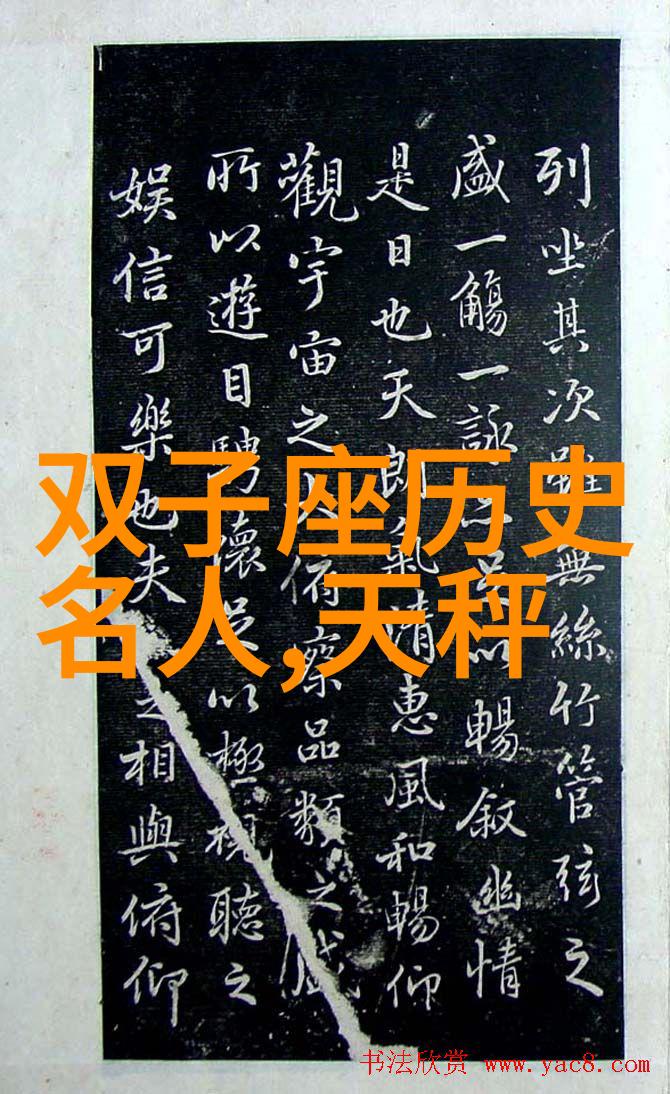 列坐其次雖無絲竹管弦之
盛一觴一詠亦足以暢叙幽情
是日也天朗氣清惠風和暢仰
觀宇宙之大俯察品類之盛
所以遊目騁懷足以極視聽之
娱信可樂也夫之相與俯仰
双子座历史
名人,天秤
书法欣赏 www.yac8.com